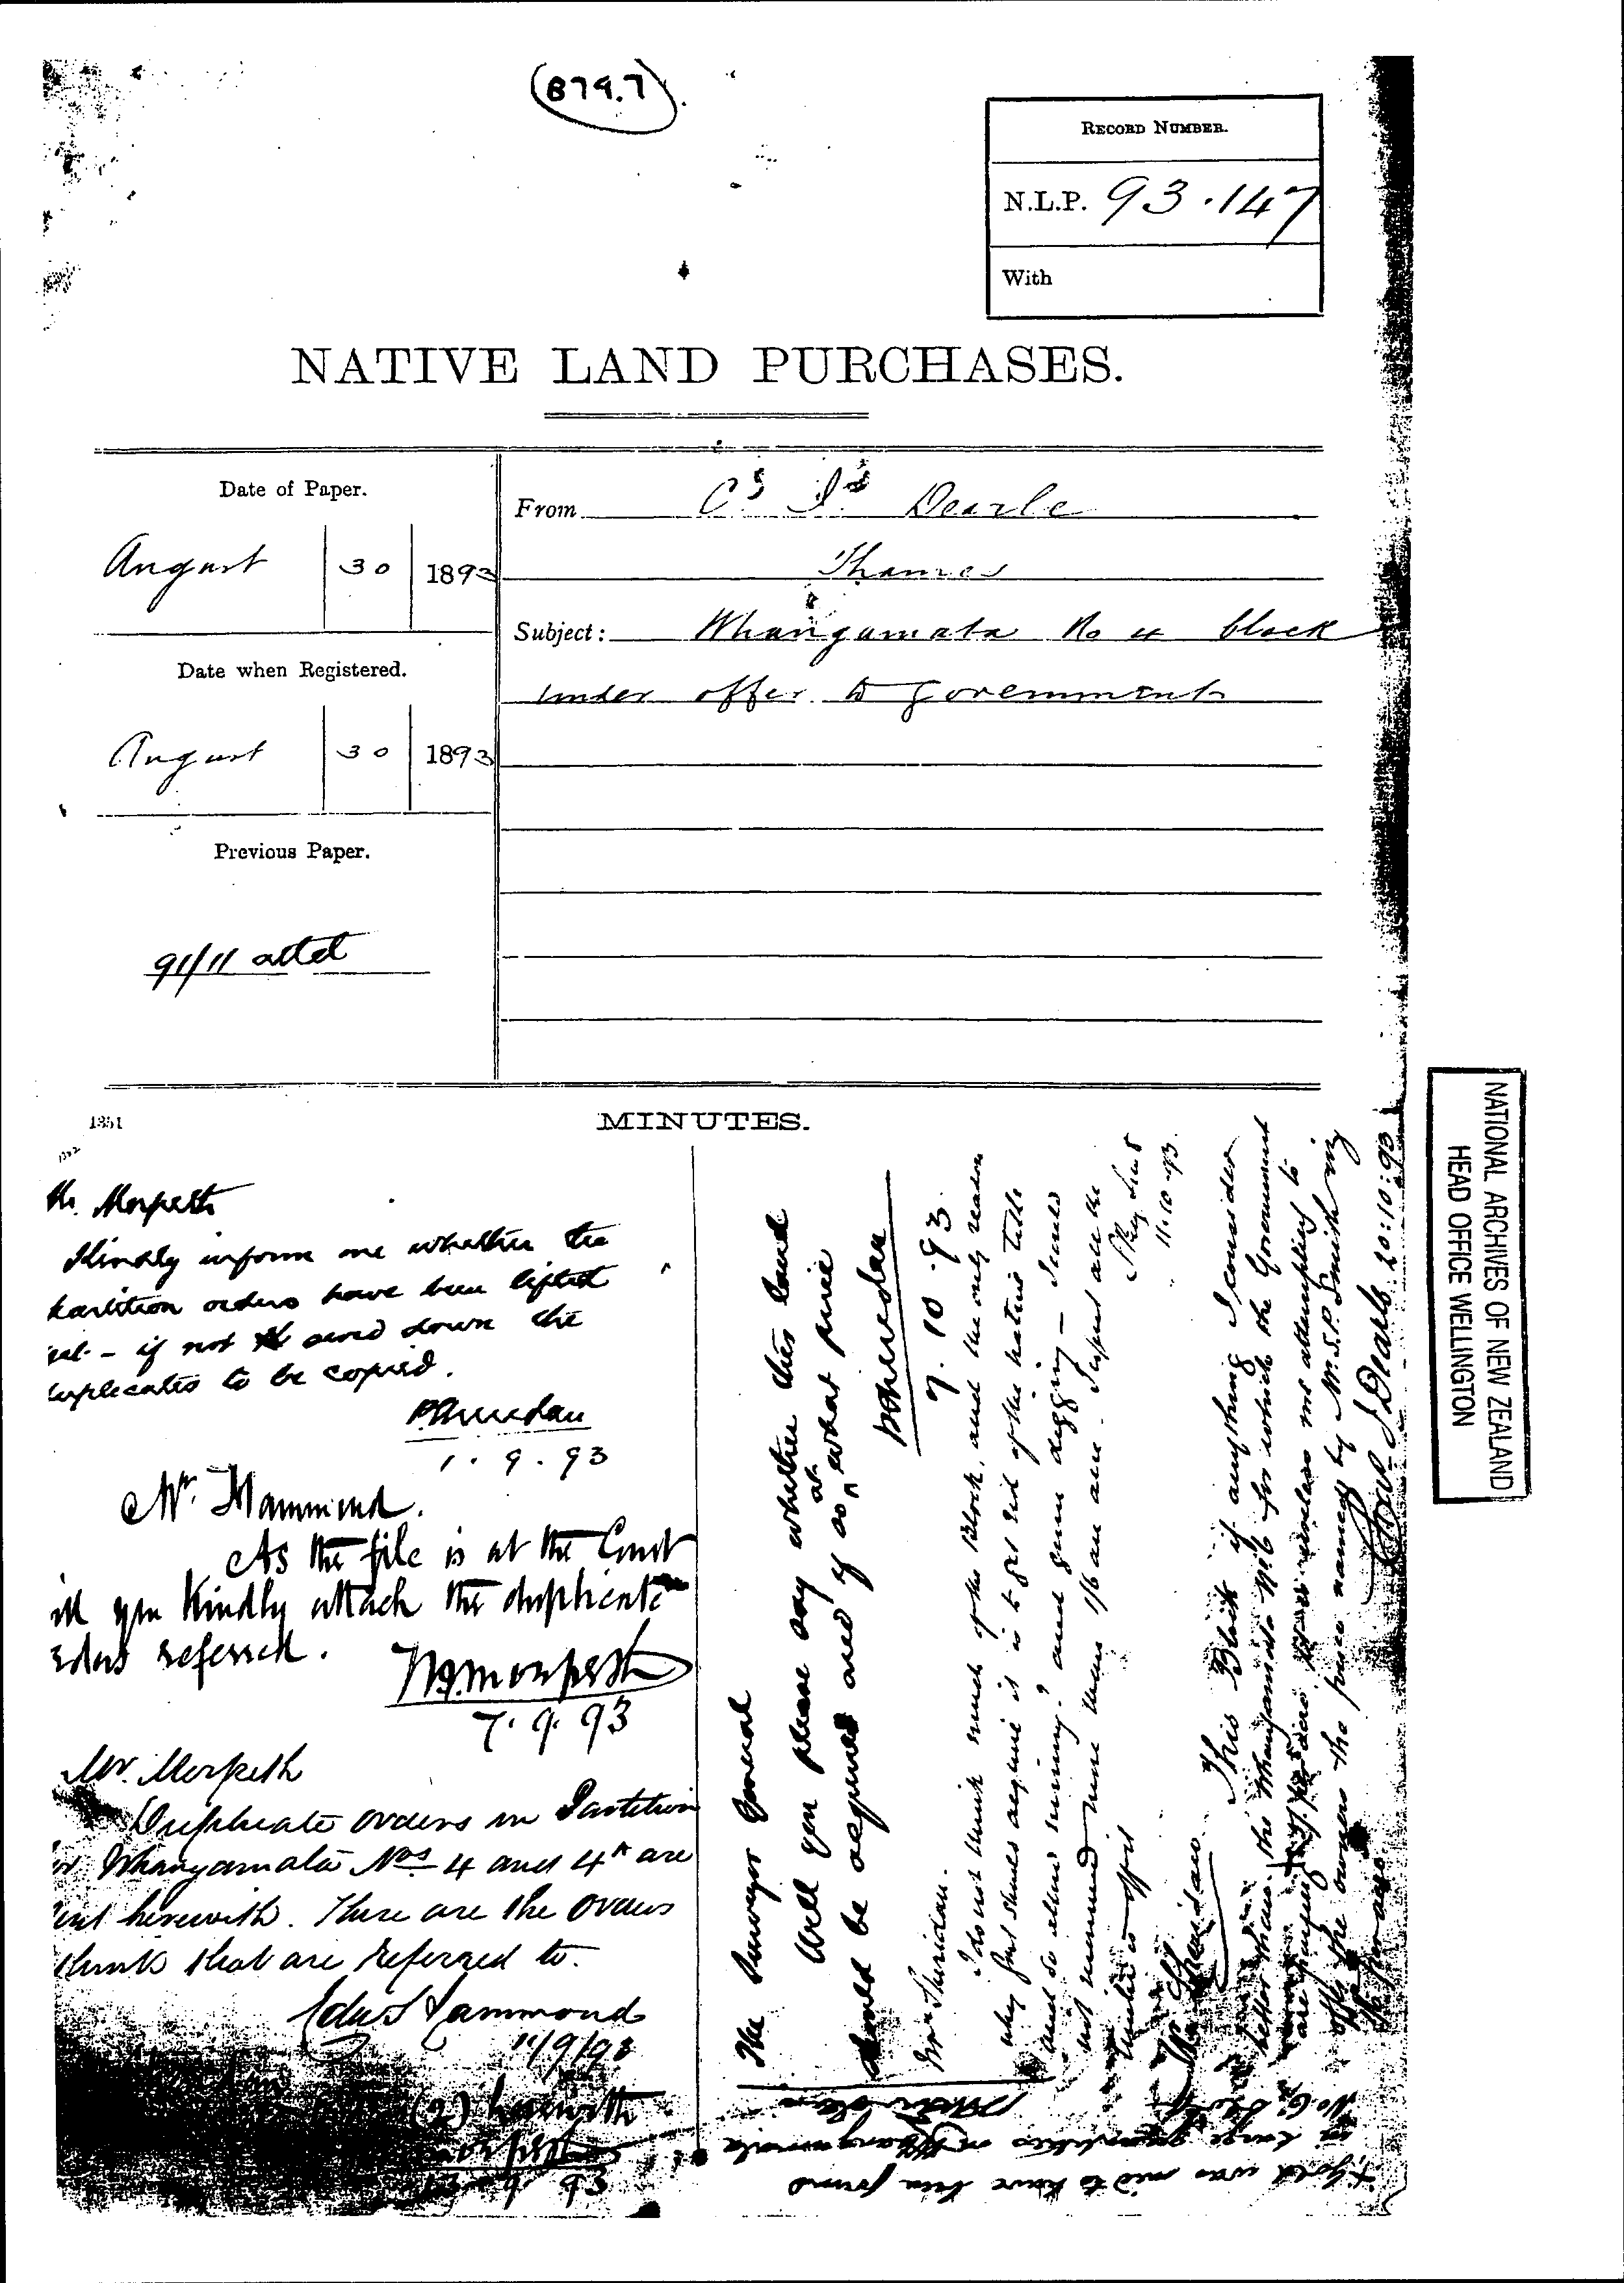 (879.7)
RECORD NUMBER.
N.L.P. 93.147
With
NATIVE LAND PURCHASES.
Date of Paper.
August 30 1893
Date when Registered.
August 30 1893
Previous Paper.
91/11 attd
From Dearle
Thames
Subject: Whangamata No 4 block
under offer to Government
1351
MINUTES.
Mr. Morpeth
Kindly inform me whether the
partition orders have been lifted
yet - if not send down the
duplicates to be copied.
P Sheridan
1.9.93
Mr. Hammond.
As the file is at the Court
will you kindly attach the duplicate
orders referred.
Morpeth
7.9.93
Mr. Morpeth
Duplicate orders on Partition
Whangamata Nos 4 and 4A are
sent herewith. These are the orders
I think that are referred to.
Edw Hammond
11/9/93
(2) herewith
Morpeth
13 9 93
The Surveyor General
Will you please say whether this land
should be acquired and if so at what price
P Sheridan
7.10.93
Mr Sheridan.
I do not think much of the block, and the only reason
why Govt should acquire it is to get rid of the native title
and so allow mining? and gum digging - I should
not recommend more than 1/6 an acre. Suspect all the
timber is off it
11.10.93
Mr Sheridan
This Block if anything I consider
better than the Whangamata No 6 for which the Government
are paying per acre. It is useless me attempting to
offer the owners the price named by Mr. S.P. Smith viz
1/6 per acre
Dearle 20:10:93
+ Gold was said to have been found
in large quantities on Whangamata
No 6
NATIONAL ARCHIVES OF NEW ZEALAND
HEAD OFFICE WELLINGTON